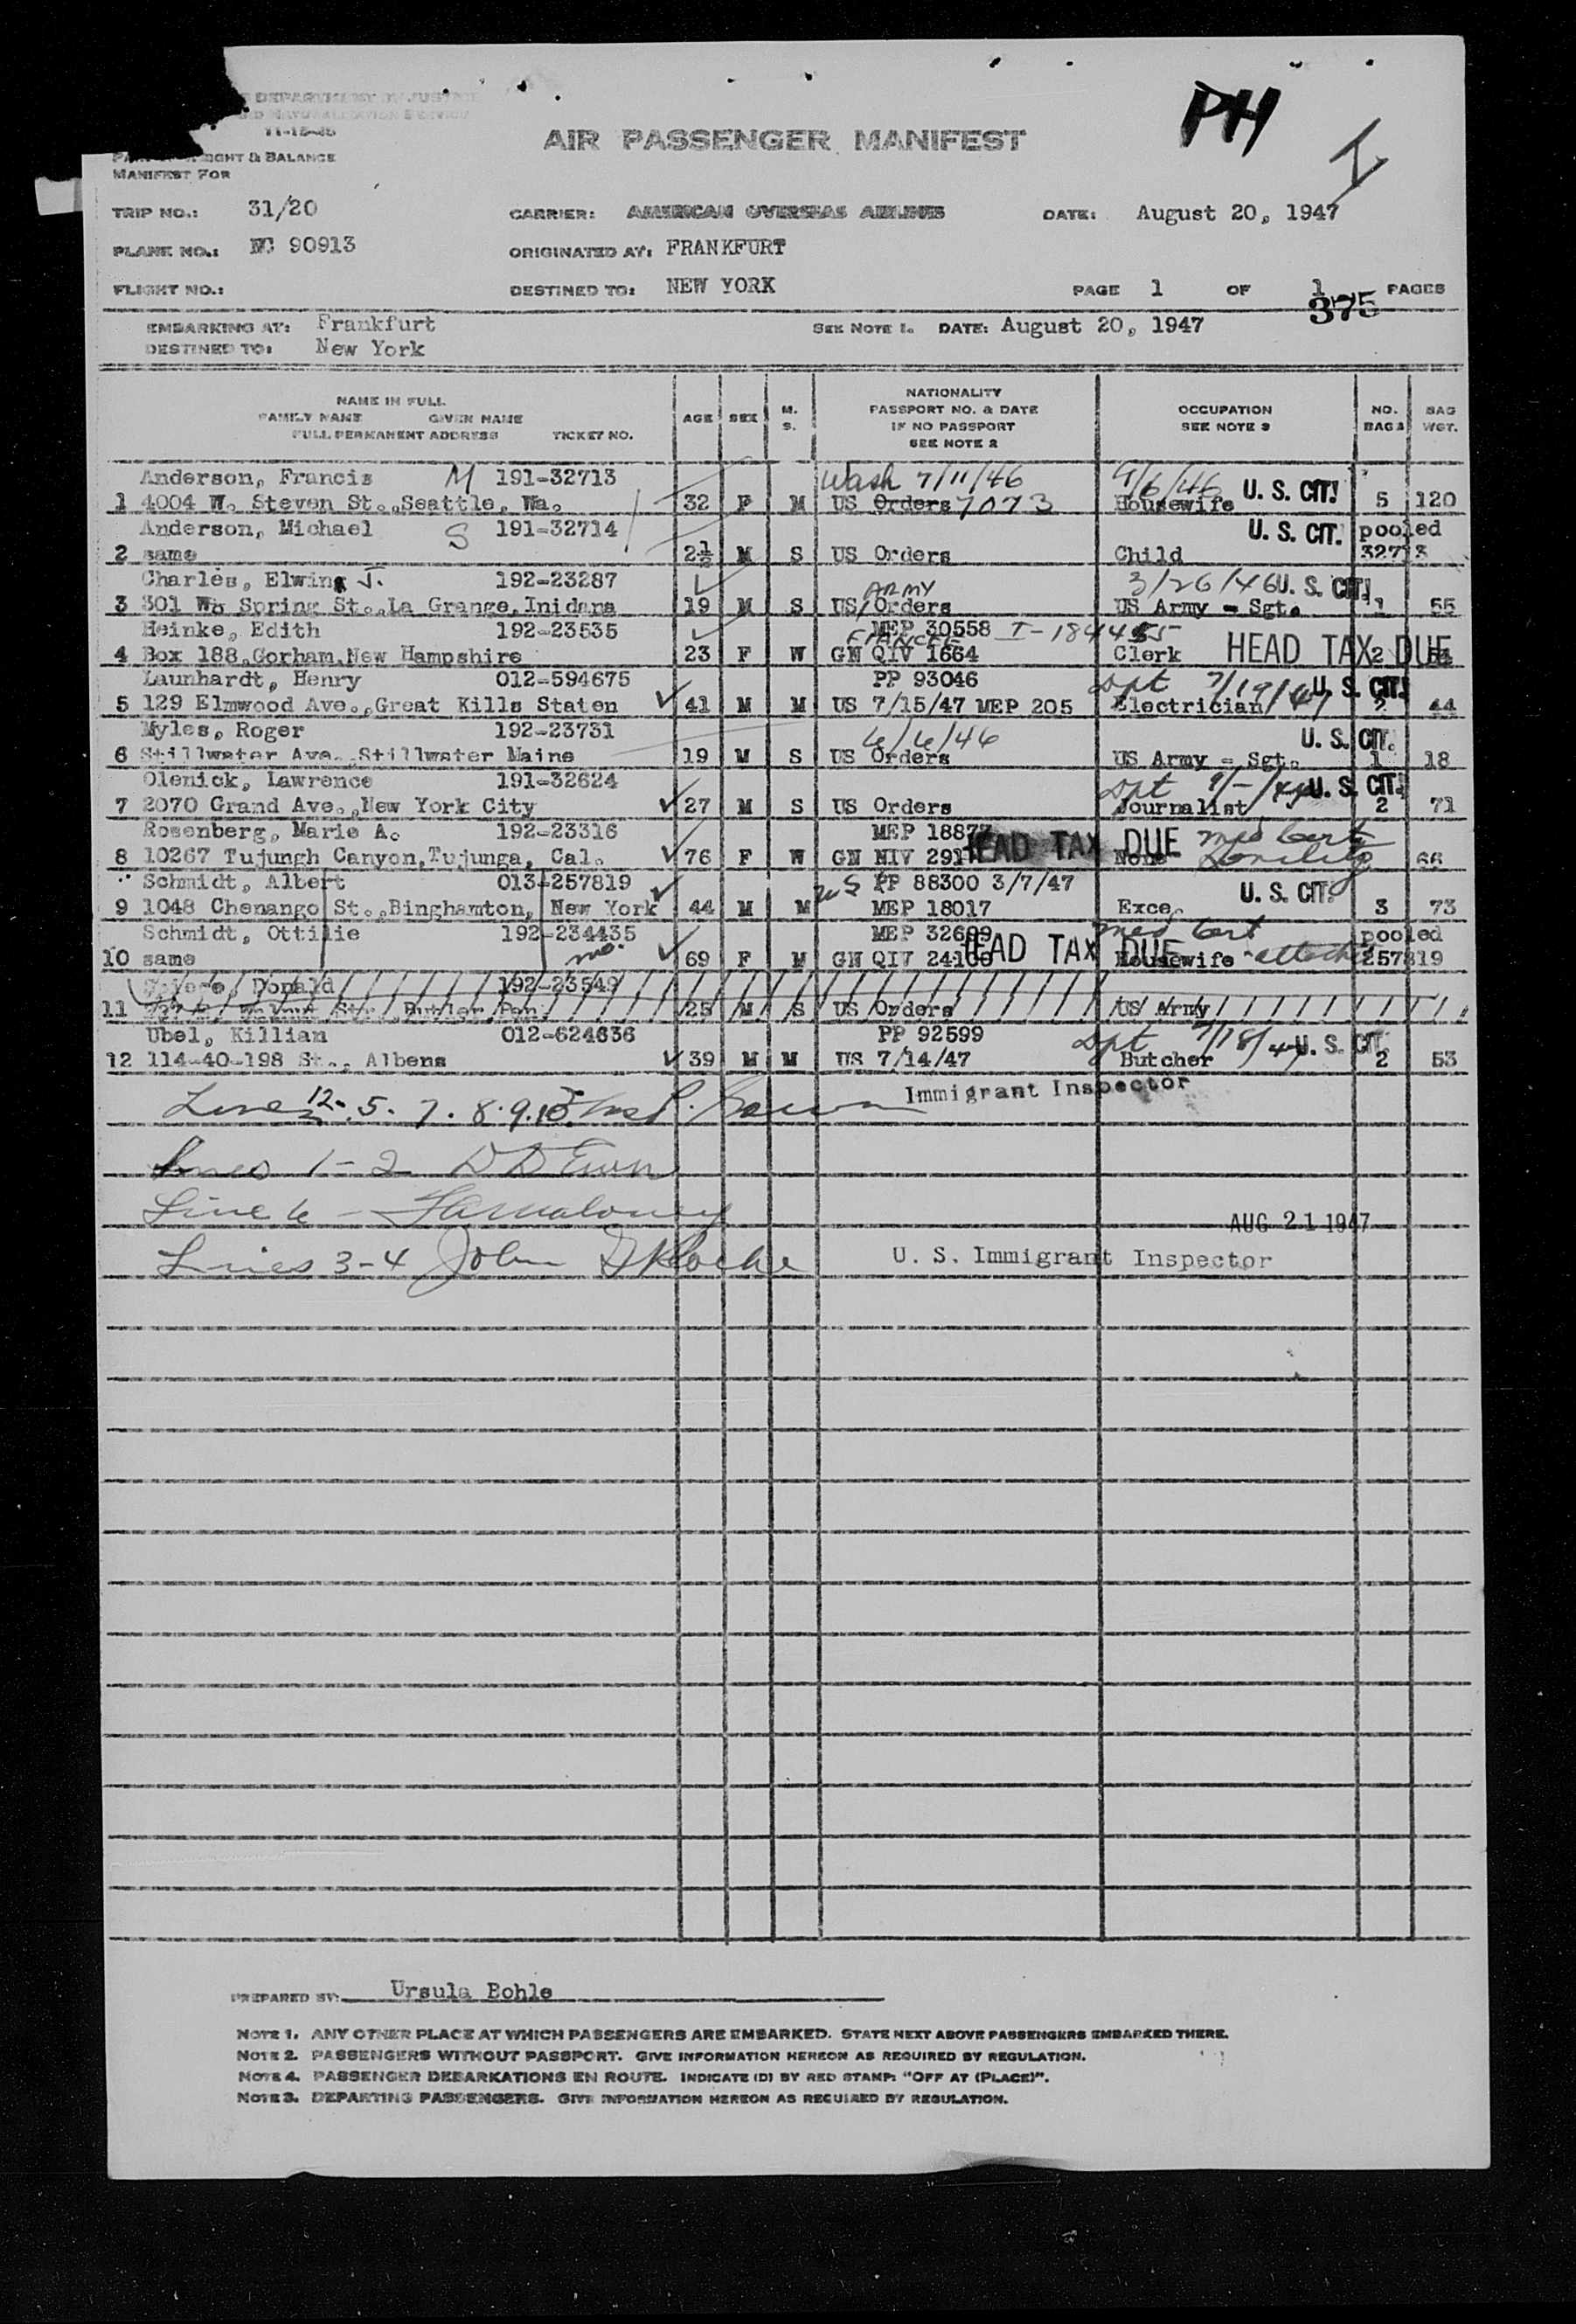 DEPARTMENT OF JUSTICE
NATURALIZATION SERVICE
11-15-45
AIR PASSENGER MANIFEST
PH
& BALANCE
MANIFEST FOR
TRIP NO.: 31/20 CARRIER: AMERICAN OVERSEAS AIRLINES DATE: August 20, 1947
PLANE NO.: NC 90913 ORIGINATED AT: FRANKFURT
FLIGHT NO.: DESTINED TO: NEW YORK PAGE 1 OF 1 PAGES
375
EMBARKING AT: Frankfurt SEE NOTE 1. DATE: August 20, 1947
DESTINED TO: New York
NAME IN FULL
FAMILY NAME GIVEN NAME
FULL PERMANENT ADDRESS TICKET NO.
AGE SEX M. S.
NATIONALITY
PASSPORT NO. & DATE
IF NO PASSPORT
SEE NOTE 2
OCCUPATION
SEE NOTE 3
NO. BAGS
BAG WGT.
Anderson, Francis M 191-32713 Wash 7/11/46 9/6/46 U. S. CIT.
1 4004 W. Steven St.,Seattle, Wa. 32 F M US Orders 7073 Housewife 5 120
Anderson, Michael S 191-32714 U. S. CIT. pooled
2 same 2½ M S US Orders Child 32713
Charles, Elwing J. 192-23287 ARMY 3/26/46 U. S. CIT.
3 301 Wo Spring St.,La Grange,Inidana 19 M S US Orders US Army - Sgt. 1 55
Heinke, Edith 192-23535 MEP 30558 I-184455 FIANCEE
4 Box 188,Gorham,New Hampshire 23 F W GN QIV 1664 Clerk HEAD TAX DUE 2
Launhardt, Henry 012-594675 PP 93046 Dpt 7/19/47 U. S. CIT.
5 129 Elmwood Ave.,Great Kills Staten 41 M M US 7/15/47 MEP 205 Electrician 2 44
Myles, Roger 192-23731 6/6/46 U. S. CIT.
6 Stillwater Ave.,Stillwater Maine 19 M S US Orders US Army - Sgt. 1 18
Olenick, Lawrence 191-32624 Dpt U. S. CIT.
7 2070 Grand Ave.,New York City 27 M S US Orders Journalist 2 71
Rosenberg, Marie A. 192-23316 MEP 18877 HEAD TAX DUE med cert
8 10267 Tujungh Canyon,Tujunga, Cal. 76 F W GN NIV None Senility 66
Schmidt, Albert 013-257819 US PP 88300 3/7/47 U. S. CIT.
9 1048 Chenango St.,Binghamton, New York 44 M M MEP 18017 Exce. 3 73
Schmidt, Ottilie 192-234435 MEP 32699 med cert pooled
10 same mo. 69 F M GN QIV HEAD TAX DUE Housewife attached 257819
Donald 192-23549
11 25 M S US Orders US Army
Ubel, Killian 012-624636 PP 92599 Dpt 7/18/47 U. S. CIT.
12 114-40-198 St., Albens 39 M M US 7/14/47 Butcher 2 53
Lines 12. 5. 7. 8. 9. 10 Immigrant Inspector
Lines 1-2 D D Ewen
Line 6 - Maloney
AUG 21 1947
Lines 3-4 John D Roche U. S. Immigrant Inspector
PREPARED BY: Ursula Bohle
NOTE 1. ANY OTHER PLACE AT WHICH PASSENGERS ARE EMBARKED. STATE NEXT ABOVE PASSENGERS EMBARKED THERE.
NOTE 2. PASSENGERS WITHOUT PASSPORT. GIVE INFORMATION HEREON AS REQUIRED BY REGULATION.
NOTE 4. PASSENGER DEBARKATIONS EN ROUTE. INDICATE (D) BY RED STAMP: "OFF AT (PLACE)".
NOTE 3. DEPARTING PASSENGERS. GIVE INFORMATION HEREON AS REQUIRED BY REGULATION.